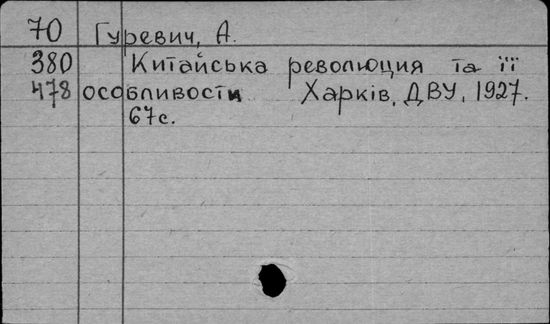 70 Гуревич, А.
380 Китайська революция та її
478 особливости Харків, ДВУ, 1927.
67с.